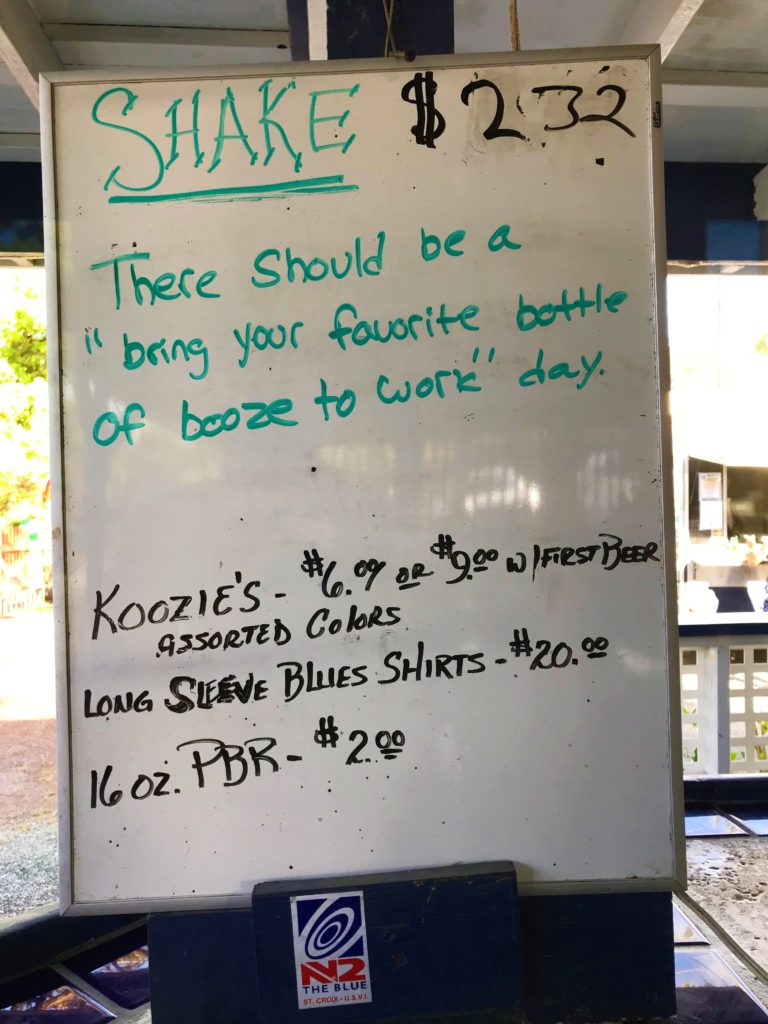 SHAKE $232
There should be a
"bring your favorite bottle
of booze to work" day.
KOOZIE'S - $6.00 OR $9.00 W/FIRST BEER
ASSORTED COLORS
LONG SLEEVE BLUES SHIRTS - $20.00
16 OZ. PBR - $2.00
N2
THE BLUE
ST. CROIX - U.S.V.I.